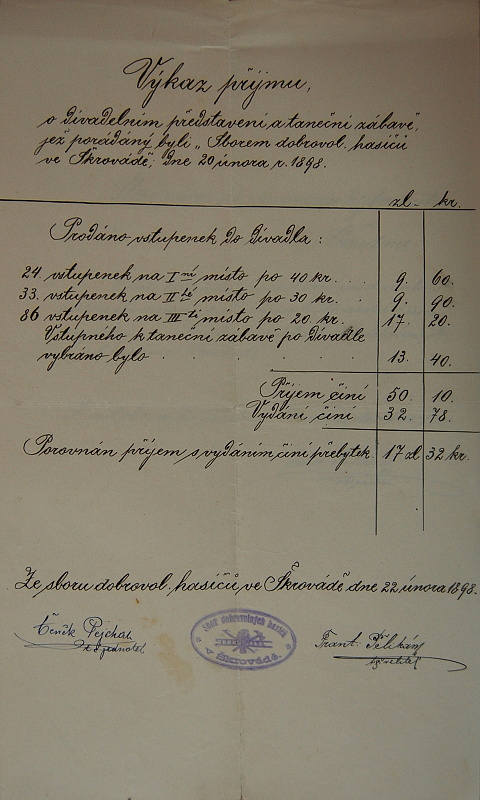 Výkaz příjmu,
o divadelním představení a taneční zábavě,
jež porádáný byli „Sborem dobrovol. hasičů
ve Škrovádě, dne 20 února r. 1898.
zl. kr.
Prodáno vstupenek do divadla:
24. vstupenek na I ní místo po 40 kr. . . 9. 60.
33. vstupenek na II hé místo po 30 kr. . 9. 90.
86 vstupenek na III tí místo po 20 kr. 17. 20.
Vstupného k taneční zábavě po divadle
vybráno bylo . . . . . 13. 40.
Příjem činí 50. 10.
Vydání činí 32. 78.
Porovnán příjem s vydáním, činí přebytek 17 zl 32 kr.
Ze sboru dobrovol. hasičů ve Škrovádě dne 22. února 1898.
Čeněk Pejchal
jednatel
Sbor dobrovolných hasičů
v Škrovádě.
Frant. Pelikán
velitel